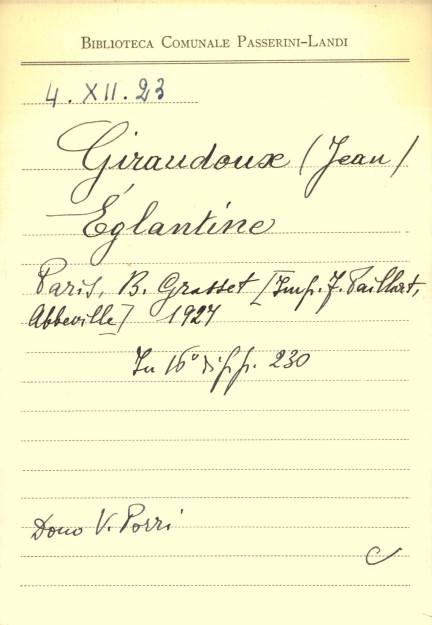 BIBLIOTECA COMUNALE PASSERINI-LANDI
4. XII. 23
Giraudoux (Jean)
Églantine
Paris, B. Grasset [Imp. F. Paillart,
Abbeville] 1927
In 16° di pp. 230
Dono V. Porri
C